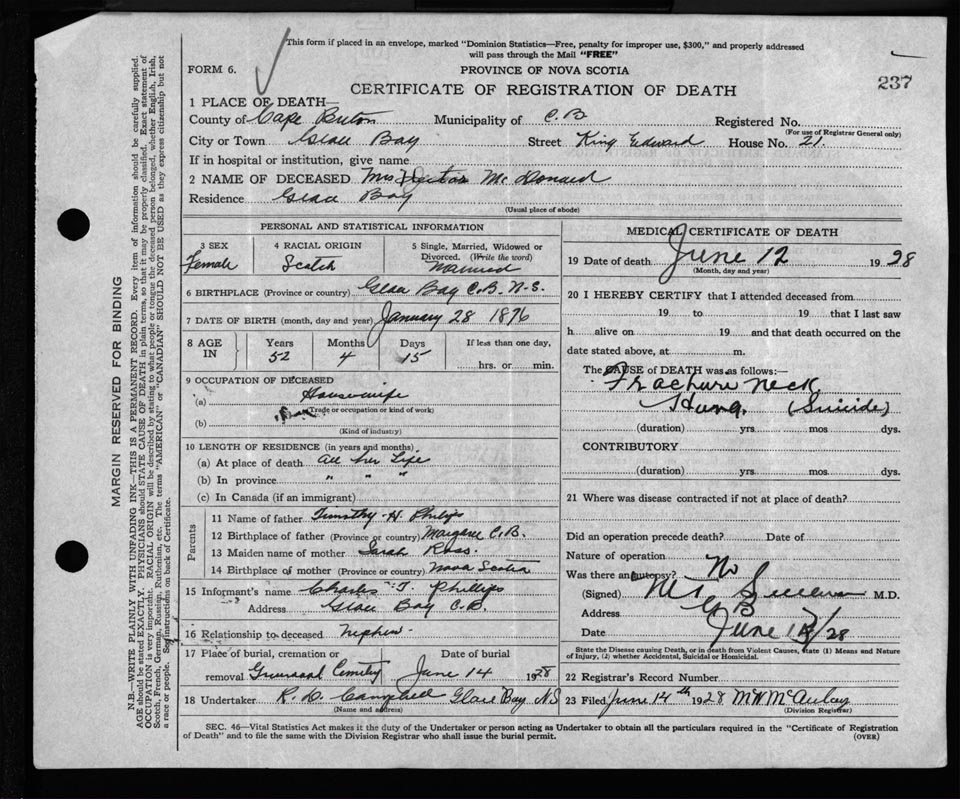 This form if placed in an envelope, marked "Dominion Statistics—Free, penalty for improper use, $300," and properly addressed
will pass through the Mail "FREE"
FORM 6.
PROVINCE OF NOVA SCOTIA
237
CERTIFICATE OF REGISTRATION OF DEATH
1 PLACE OF DEATH—
County of Cape Breton Municipality of C.B Registered No.
(For use of Registrar General only)
City or Town Glace Bay Street King Edward House No. 21.
If in hospital or institution, give name
2 NAME OF DECEASED Mrs Mc Donald
Residence Glace Bay
(Usual place of abode)
PERSONAL AND STATISTICAL INFORMATION
3 SEX
Female
4 RACIAL ORIGIN
Scotch
5 Single, Married, Widowed or
Divorced. (Write the word)
Married
6 BIRTHPLACE (Province or country) Glace Bay C.B. N.S.
7 DATE OF BIRTH (month, day and year) January 28 1876
8 AGE
IN
Years
52
Months
4
Days
15
If less than one day,
hrs. or min.
9 OCCUPATION OF DECEASED
(a) Housewife
(Trade or occupation or kind of work)
(b)
(Kind of industry)
10 LENGTH OF RESIDENCE (in years and months)
(a) At place of death All her Life
(b) In province " " "
(c) In Canada (if an immigrant)
Parents
11 Name of father Timothy H. Phillips
12 Birthplace of father (Province or country) Margaree C.B.
13 Maiden name of mother Sarah Ross.
14 Birthplace of mother (Province or country) Nova Scotia
15 Informant's name Charles T Phillips
Address Glace Bay C.B.
16 Relationship to deceased nephew.
17 Place of burial, cremation or
removal Greenwood Cemetery
Date of burial
June 14 1928
18 Undertaker R. D. Campbell Glace Bay NS
(Name and address)
MEDICAL CERTIFICATE OF DEATH
19 Date of death June 12 1928
(Month, day and year)
20 I HEREBY CERTIFY that I attended deceased from
19 to 19 that I last saw
h alive on 19 and that death occurred on the
date stated above, at m.
The CAUSE of DEATH was as follows:—
Fracture neck
Hung. (Suicide)
(duration) yrs mos dys.
CONTRIBUTORY
(duration) yrs mos dys.
21 Where was disease contracted if not at place of death?
Did an operation precede death? Date of
Nature of operation
Was there an autopsy? No
(Signed) M.D.
Address GB
Date June 13/28
State the Disease causing Death, or in death from Violent Causes, state (1) Means and Nature
of Injury, (2) whether Accidental, Suicidal or Homicidal.
22 Registrar's Record Number
23 Filed June 14th 1928 M W McAulay
(Division Registrar)
SEC. 46—Vital Statistics Act makes it the duty of the Undertaker or person acting as Undertaker to obtain all the particulars required in the "Certificate of Registration
of Death" and to file the same with the Division Registrar who shall issue the burial permit.
(OVER)
MARGIN RESERVED FOR BINDING
N.B.—WRITE PLAINLY WITH UNFADING INK—THIS IS A PERMANENT RECORD. Every item of information should be carefully supplied.
AGE should be stated EXACTLY. PHYSICIANS should STATE CAUSE OF DEATH in plain terms, so that it may be properly classified. Exact statement of
OCCUPATION is very important. RACIAL ORIGIN will be described by stating to what people or tongue the deceased person belonged, whether English, Irish,
Scotch, French, German, Russian, Ruthenian, etc. The terms "AMERICAN" or "CANADIAN" SHOULD NOT BE USED as they express citizenship but not
a race or people. See instructions on back of Certificate.